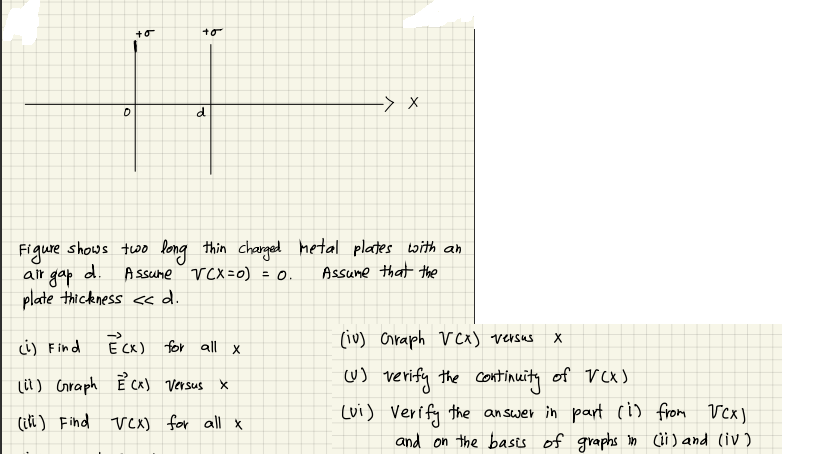 +σ +σ
X
0 d
Figure shows two long thin charged metal plates with an
air gap d. Assume V(X=0) = 0. Assume that the
plate thickness << d.
(i) Find E⃗(x) for all x
(ii) Graph E⃗(x) versus x
(iii) Find V(x) for all x
(iv) Graph V(x) versus x
(v) verify the continuity of V(x)
(vi) Verify the answer in part (i) from V(x)
and on the basis of graphs in (ii) and (iv)